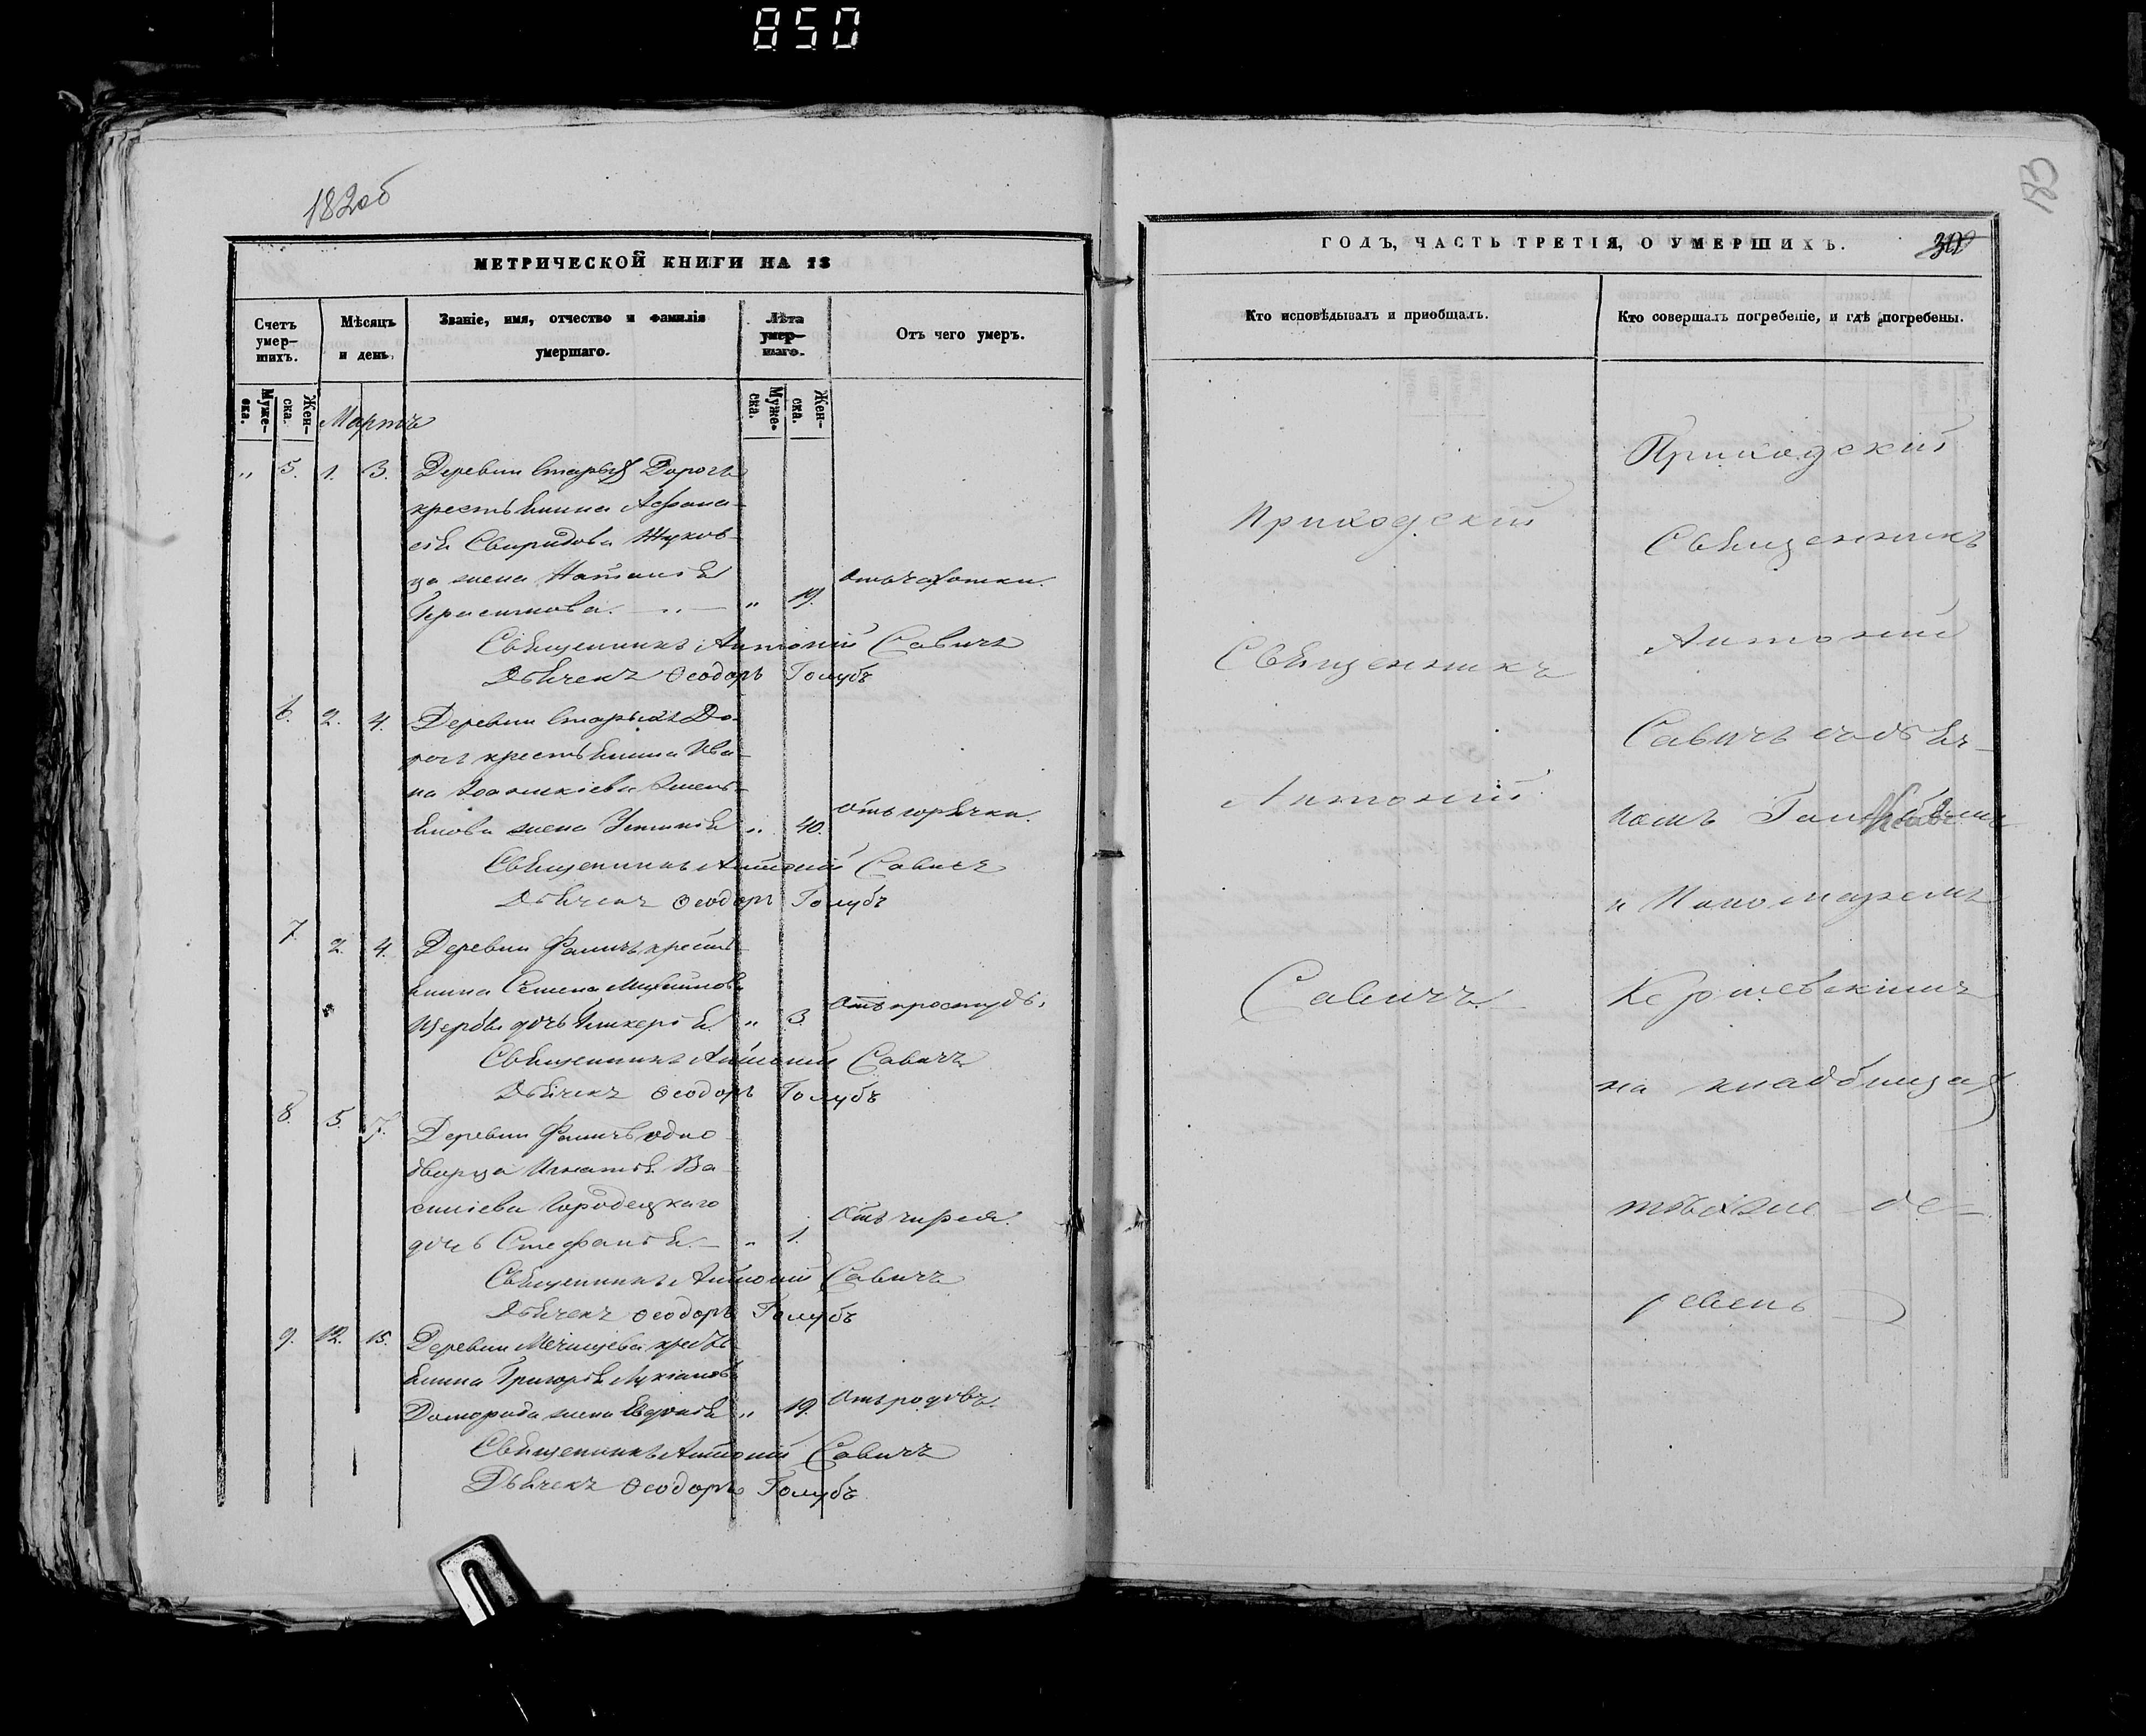 850
182об
МЕТРИЧЕСКОЙ КНИГИ НА 18
Счетъ умер-шихъ.
Мѣсяцъ и день.
Званіе, имя, отчество и фамилія умершаго.
Лѣта умер-шаго.
Отъ чего умеръ.
Муже-ска.
Жен-ска.
Муже-ска.
Жен-ска.
Мартъ
„ 5. 1. 3. Деревни Старыхъ Дорогъ
крестьянина Афана-
сія Свиридова Жуков-
ца жена Наталія
Герасимова. „ 19. отъ чахотки.
Священникъ Антоній Савичъ
Дьячекъ Ѳеодоръ Голубъ
6. 2. 4. Деревни Старыхъ До-
рогъ крестьянина Ива-
на Іоанникіева
жена Устинія „ 40. отъ горячки.
Священникъ Антоній Савичъ
Дьячекъ Ѳеодоръ Голубъ
7. 2. 4. Деревни Фаличъ кресть-
янина Семена
Щербы дочь Гликерія. „ 3. отъ простуды.
Священникъ Антоній Савичъ
Дьячекъ Ѳеодоръ Голубъ
8. 5. 7. Деревни Фаличъ одно-
дворца Игнатія Ва-
силіева Городецкаго
дочь Стефанія. „ 1. отъ чирея.
Священникъ Антоній Савичъ
Дьячекъ Ѳеодоръ Голубъ
9. 12. 15. Деревни кресть-
янина Григорія Лукіанова
Доморада жена Евдокія „ 19. отъ родовъ.
Священникъ Антоній Савичъ
Дьячекъ Ѳеодоръ Голубъ
183
ГОДЪ, ЧАСТЬ ТРЕТІЯ, О УМЕРШИХЪ.
Кто исповѣдывалъ и пріобщалъ.
Кто совершалъ погребеніе, и гдѣ погребены.
Приходскій
Священникъ
Антоній
Савичъ.
Приходскій
Священникъ
Антоній
Савичъ съ дьяч-
комъ
и Пономаремъ
на кладбищахъ
тѣхже де-
ревень